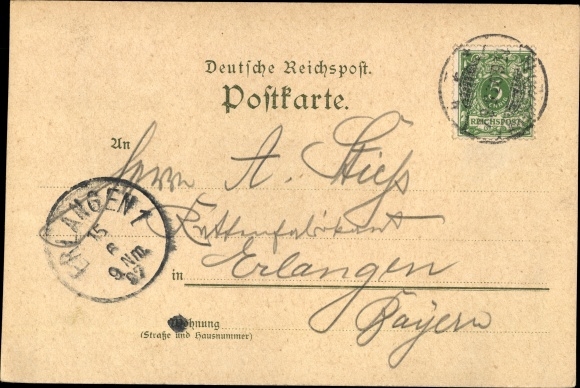 Deutsche Reichspost.
Postkarte.
5
REICHSPOST
An
Herrn A. Stieß
Kettenfabrikant
ERLANGEN 1
15
6
9 Nm.
97
in Erlangen
Bayern
Wohnung
(Straße und Hausnummer)